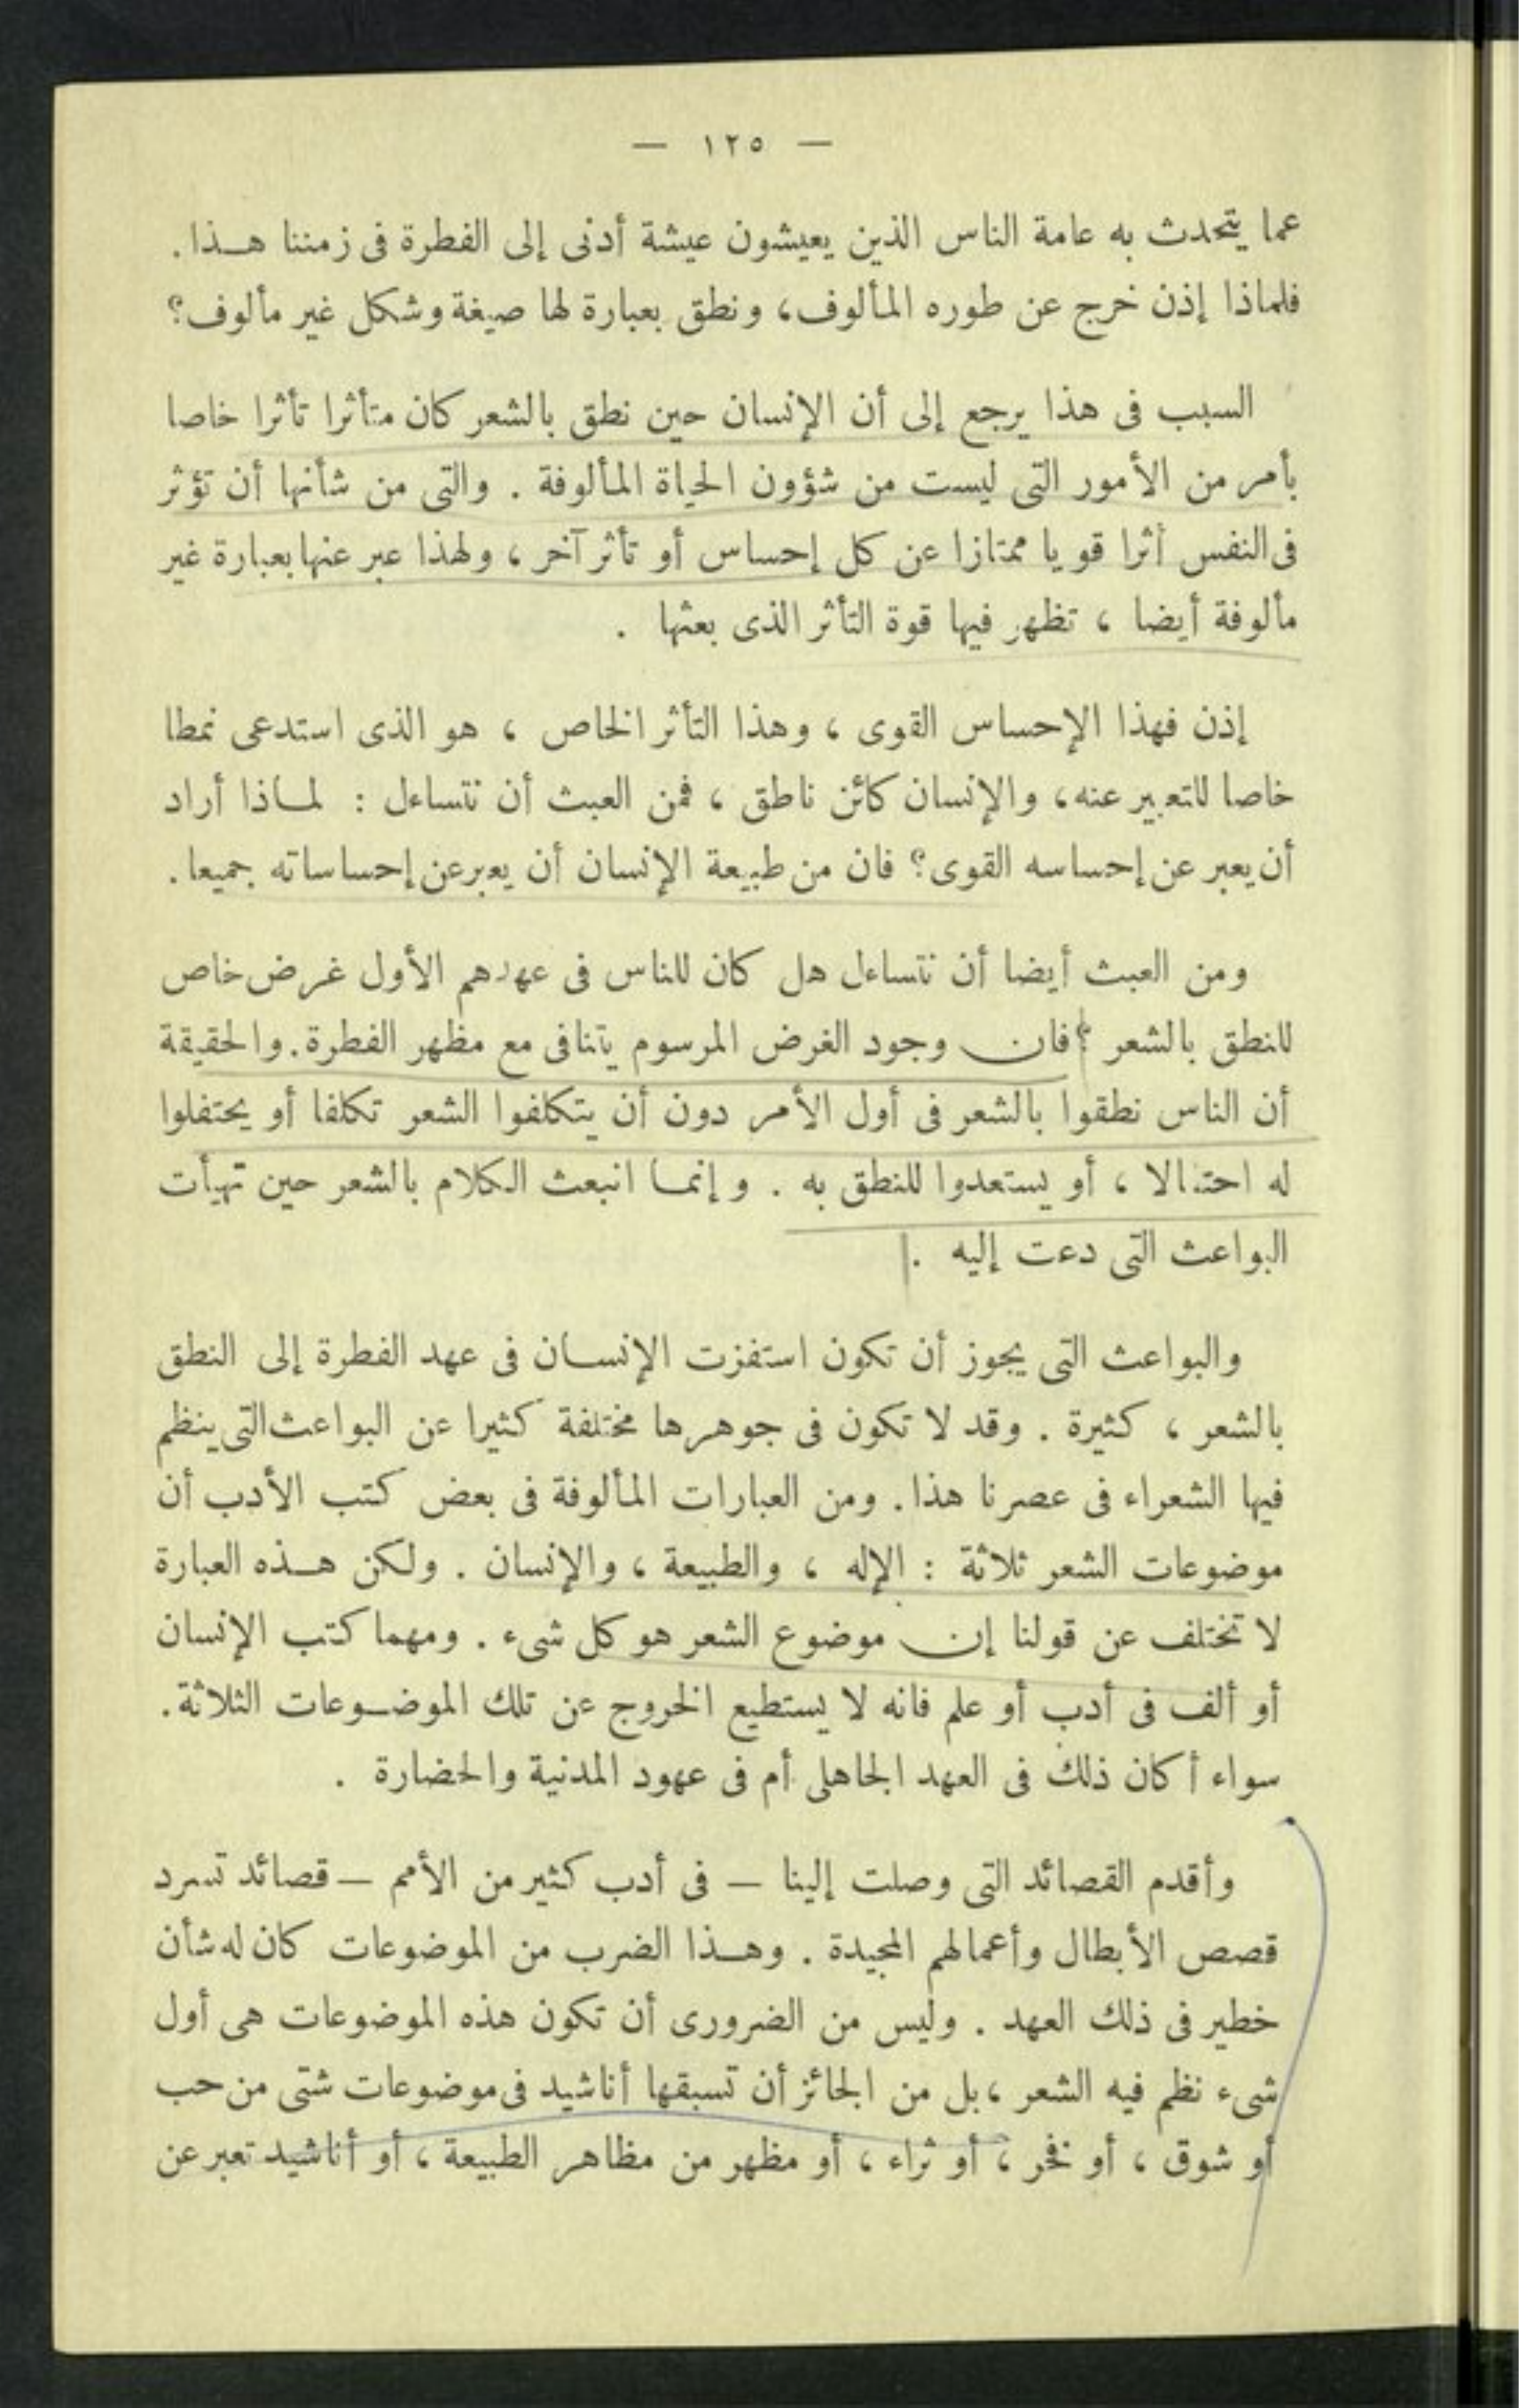 — ١٢٥ —
عما يتحدث به عامة الناس الذين يعيشون عيشة أدنى إلى الفطرة فى زمننا هـذا .
فلماذا إذن خرج عن طوره المألوف، ونطق بعبارة لها صيغة وشكل غير مألوف؟
السبب فى هذا يرجع إلى أن الإنسان حين نطق بالشعر كان متأثرا تأثرا خاصا
بأمر من الأمور التى ليست من شؤون الحياة المألوفة . والتى من شأنها أن تؤثر
فى النفس أثرا قويا ممتازا عن كل إحساس أو تأثر آخر ، ولهذا عبر عنها بعبارة غير
مألوفة أيضا ، تظهر فيها قوة التأثر الذى بعثها .
إذن فهذا الإحساس القوى ، وهذا التأثر الخاص ، هو الذى استدعى نمطا
خاصا للتعبير عنه، والإنسان كائن ناطق ، فمن العبث أن نتساءل : لمـاذا أراد
أن يعبر عن إحساسه القوى؟ فان من طبيعة الإنسان أن يعبر عن إحساساته جميعا .
ومن العبث أيضا أن نتساءل هل كان للناس فى عهدهم الأول غرض خاص
للنطق بالشعر ؟ فان وجود الغرض المرسوم يتنافى مع مظهر الفطرة . والحقيقة
أن الناس نطقوا بالشعر فى أول الأمر دون أن يتكلفوا الشعر تكلفا أو يحتفلوا
له احتفالا ، أو يستعدوا للنطق به . وإنمـا انبعث الكلام بالشعر حين تهيأت
البواعث التى دعت إليه .
والبواعث التى يجوز أن تكون استفزت الإنسـان فى عهد الفطرة إلى النطق
بالشعر ، كثيرة . وقد لا تكون فى جوهرها مختلفة كثيرا عن البواعث التى ينظم
فيها الشعراء فى عصرنا هذا . ومن العبارات المألوفة فى بعض كتب الأدب أن
موضوعات الشعر ثلاثة : الإله ، والطبيعة ، والإنسان . ولكن هـذه العبارة
لا تختلف عن قولنا إن موضوع الشعر هو كل شىء . ومهما كتب الإنسان
أو ألف فى أدب أو علم فانه لا يستطيع الخروج عن تلك الموضـوعات الثلاثة .
سواء أكان ذلك فى العهد الجاهلى أم فى عهود المدنية والحضارة .
وأقدم القصائد التى وصلت إلينا — فى أدب كثير من الأمم — قصائد تسرد
قصص الأبطال وأعمالهم المجيدة . وهـذا الضرب من الموضوعات كان له شأن
خطير فى ذلك العهد . وليس من الضرورى أن تكون هذه الموضوعات هى أول
شىء نظم فيه الشعر ، بل من الجائز أن تسبقها أناشيد فى موضوعات شتى من حب
أو شوق ، أو فخر ، أو ثراء ، أو مظهر من مظاهر الطبيعة ، أو أناشيد تعبر عن